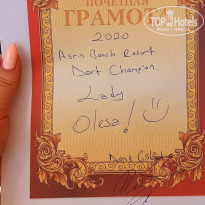 ПОЧЕТНАЯ
ГРАМОТА
2020
Asrın Beach Resort
Dart Champion
Lady
Olesa!
TopHotels